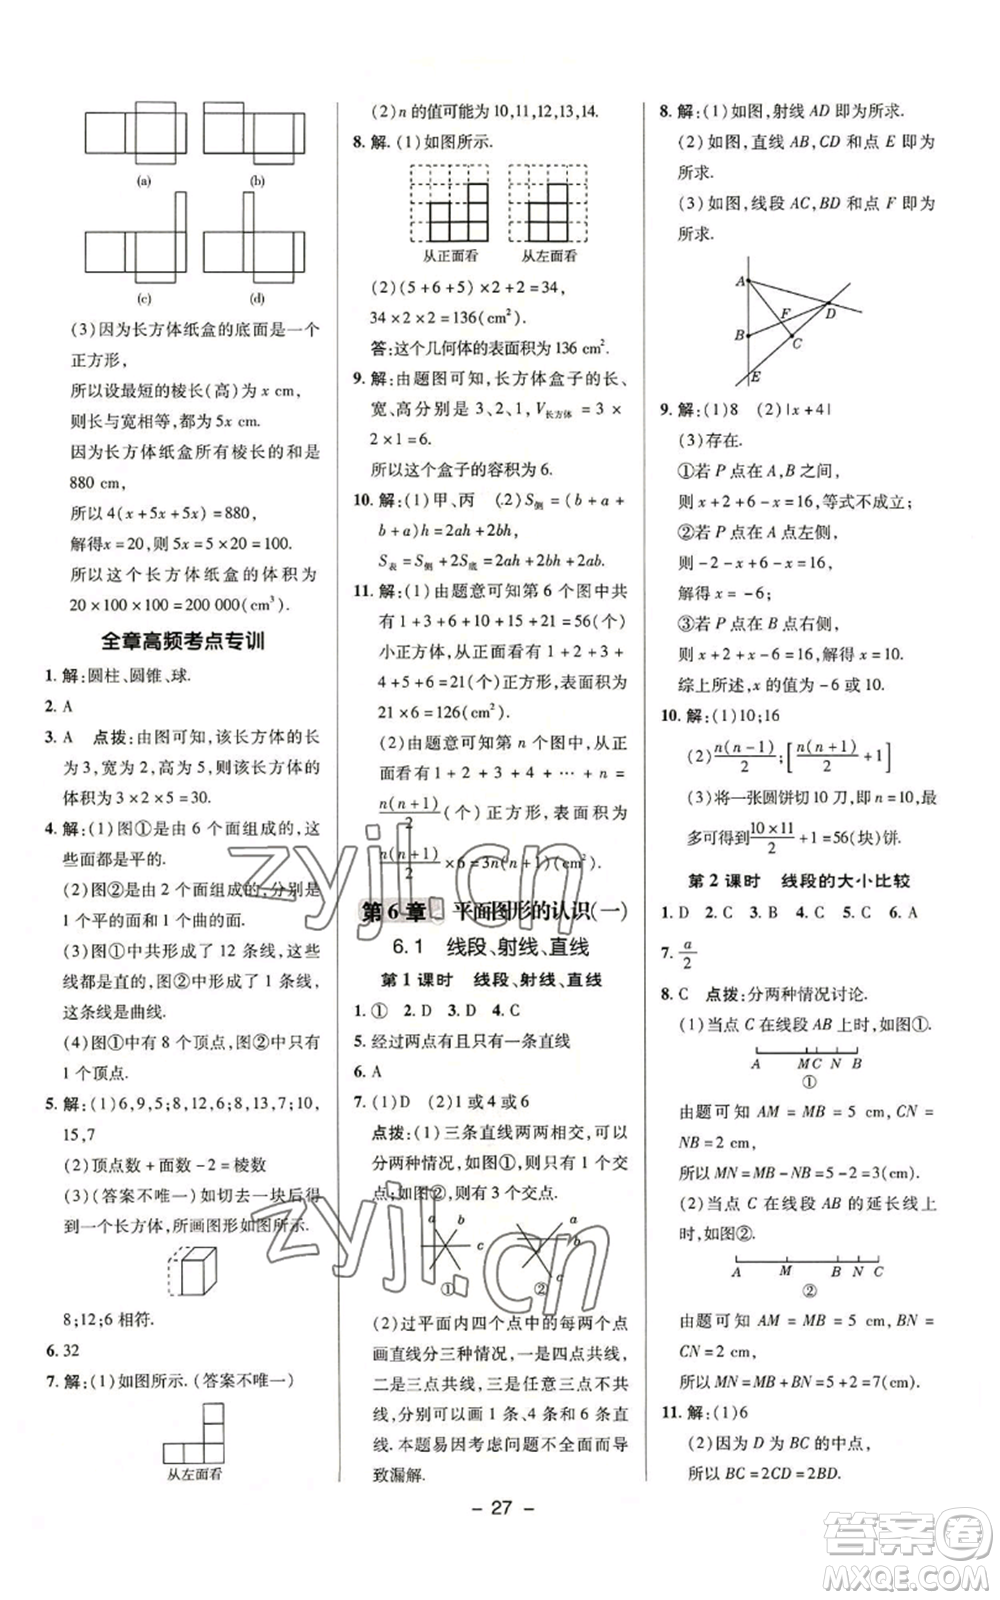 (a)
(b)
(c)
(d)
(3)因为长方体纸盒的底面是一个
正方形,
所以设最短的棱长(高)为 x cm,
则长与宽相等,都为 5x cm.
因为长方体纸盒所有棱长的和是
880 cm,
所以 4(x+5x+5x)=880,
解得x=20,则 5x=5×20=100.
所以这个长方体纸盒的体积为
20×100×100=200 000(cm³).
全章高频考点专训
1. 解:圆柱、圆锥、球.
2. A
3. A 点拨:由图可知,该长方体的长
为3,宽为2,高为5,则该长方体的
体积为3×2×5=30.
4. 解:(1)图①是由 6 个面组成的,这
些面都是平的.
(2)图②是由 2 个面组成的,分别是
1 个平的面和 1 个曲的面.
(3)图①中共形成了 12 条线,这些
线都是直的;图②中共形成 1 条线,
这条线是曲线.
(4)图①中有 8 个顶点,图②中只有
1 个顶点.
5. 解:(1)6,9,5;8,12,6;8,13,7;10,
15,7
(2)顶点数+面数-2=棱数
(3)(答案不唯一)如切去一块后得
到一个长方体,所画图形如图所示.
8;12;6 相符.
6. 32
7. 解:(1)如图所示.(答案不唯一)
从左面看
(2) n 的值可能为 10,11,12,13,14.
8. 解.(1)如图所示.
从正面看 从左面看
(2)(5+6+5)×2+2=34,
34×2×2=136(cm²).
答:这个几何体的表面积为 136 cm².
9. 解:由题图可知,长方体盒子的长、
宽、高分别是 3、2、1,V长方体=3×
2×1=6.
所以这个盒子的容积为 6.
10. 解:(1)甲、丙 (2)S侧=(b+a+
b+a)h=2ah+2bh,
S表=S侧+2S底=2ah+2bh+2ab.
11. 解:(1)由题意可知第 6 个图中共
有 1+3+6+10+15+21=56(个)
小正方体,从正面看有 1+2+3+
4+5+6=21(个)正方形,表面积为
21×6=126(cm²).
(2)由题意可知第 n 个图中,从正
面看有 1+2+3+4+⋯+n=
n(n+1)/2(个)正方形,表面积为
n(n+1)/2×6=3n(n+1)(cm²).
第6章 平面图形的认识(一)
6.1 线段、射线、直线
第1课时 线段、射线、直线
1. ① 2. D 3. D 4. C
5. 经过两点有且只有一条直线
6. A
7. (1)D (2)1 或 4 或 6
点拨:(1)三条直线两两相交,可分
两种情况,如图①,三条直线交于一
点;如图②,则有 3 个交点.
a b c ①
a b c ②
(2)过平面内四个点中的每两个点
画直线分三种情况,一是四点共线,
二是三点共线,三是任意三点不共
线.则可以画 1 条、4 条和 6 条直
线.本题易因考虑问题不全面而导
致漏解.
8. 解:(1)如图,射线 AD 即为所求.
(2)如图,直线 AB,CD 和点 E 即为
所求.
(3)如图,线段 AC,BD 和点 F 即为
所求.
A
F D
B C
E
9. 解:(1)8 (2)|x+4|
(3)存在.
①若 P 点在 A,B 之间,
则 x+2+6-x=16,等式不成立;
②若 P 点在 A 点左侧,
则 -2-x+6-x=16,
解得 x=-6;
③若 P 点在 B 点右侧,
则 x+2+x-6=16,解得 x=10.
综上所述,x 的值为-6或10.
10. 解:(1)10;16
(2)n(n-1)/2;[n(n+1)/2+1]
(3)将一张圆饼切10刀,即n=10,最
多可得到10×11/2+1=56(块)饼.
第2课时 线段的大小比较
1. D 2. C 3. C 4. C 5. C 6. A
7. a/2
8. C 点拨:分两种情况讨论.
(1)当点 C 在线段 AB 上时,如图①.
A MC N B
①
由题可知 AM=MB=5 cm,CN=
NB=2 cm,
所以MN=MB-NB=5-2=3(cm).
(2)当点 C 在线段 AB 的延长线上
时,如图②.
A M B N C
②
由题可知 AM=MB=5 cm,BN=
CN=2 cm,
所以MN=MB+BN=5+2=7(cm).
11. 解:(1)6
(2)因为 D 为 BC 的中点,
所以 BC=2CD=2BD.
- 27 -
zyjl.cn
zyjl.cn
答案圈
MXQE.COM